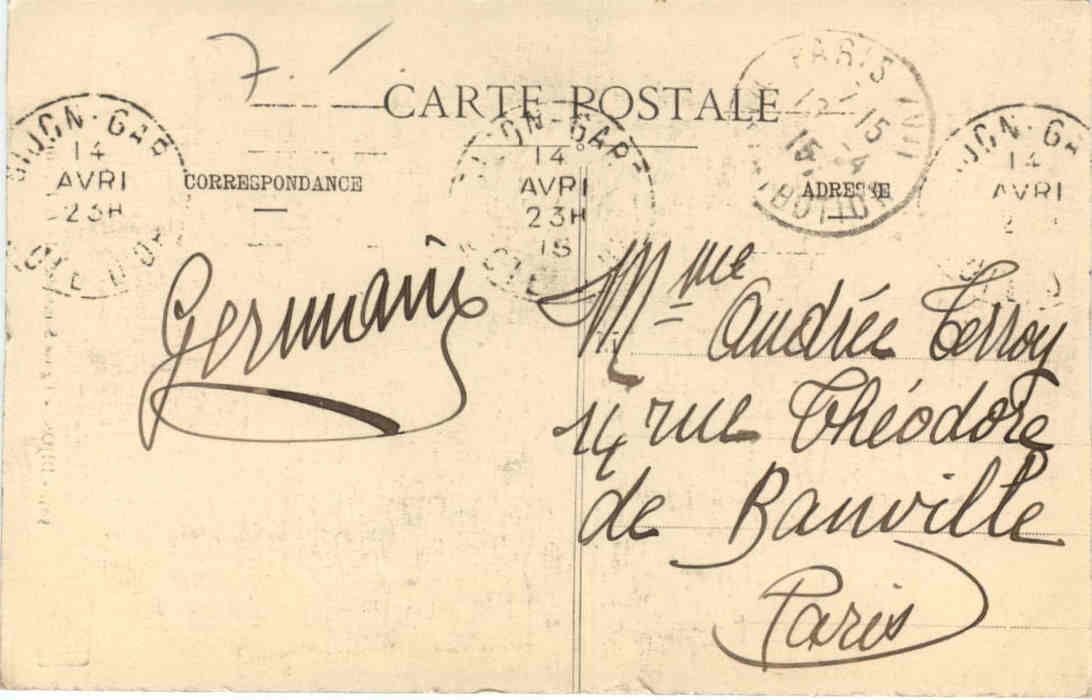 7.
CARTE POSTALE
CORRESPONDANCE
ADRESSE
DIJON-GARE
14
AVRI
23H
COTE D'OR
DIJON-GARE
14
AVRI
23H
15
COTE
PARIS XVII
15-4
15
DIJON-GA
14
AVRI
2
Germain
Mme Andrée Terroy
14 rue Théodore
de Banville
Paris